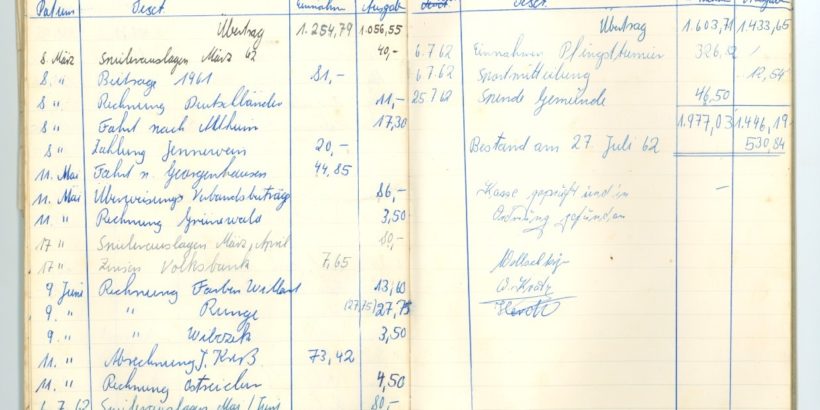 Datum Text Einnahm Ausgab
Übertrag 1.254,79 1.056,55
8 März Spielerauslagen März 62 40,-
8. " Beiträge 1961 81,-
8. " Rechnung Deutschländer 11,-
8 " Fahrt nach Altheim 17,30
8 " Zahlung Jennewein 20,-
11. Mai Fahrt n. Georgenhausen 44,85
11. Mai Überweisung Verbandsbeiträge 86,-
11. " Rechnung Grünewald 3,50
17 " Spielerauslagen März, April 80,-
17 " Zinsen Volksbank 7,65
9 Juni Rechnung Farben 13,60
9. " " Runge (27,75) 27,75
9. " " 3,50
11. " Abrechnung J. 73,42
11. " Rechnung 4,50
6.7.62 Spielerauslagen Mai / Juni 80,-
Text
Übertrag 1.603,71 1.433,65
6.7.62 Einnahmen Pfingstturnier 326,82 -
6.7.62 Sportmitteilung 12,54
25.7.62 Spende Gemeinde 46,50
1.977,03 1.446,19
Bestand am 27. Juli 62 530,84
Kasse geprüft und in -
Ordnung gefunden